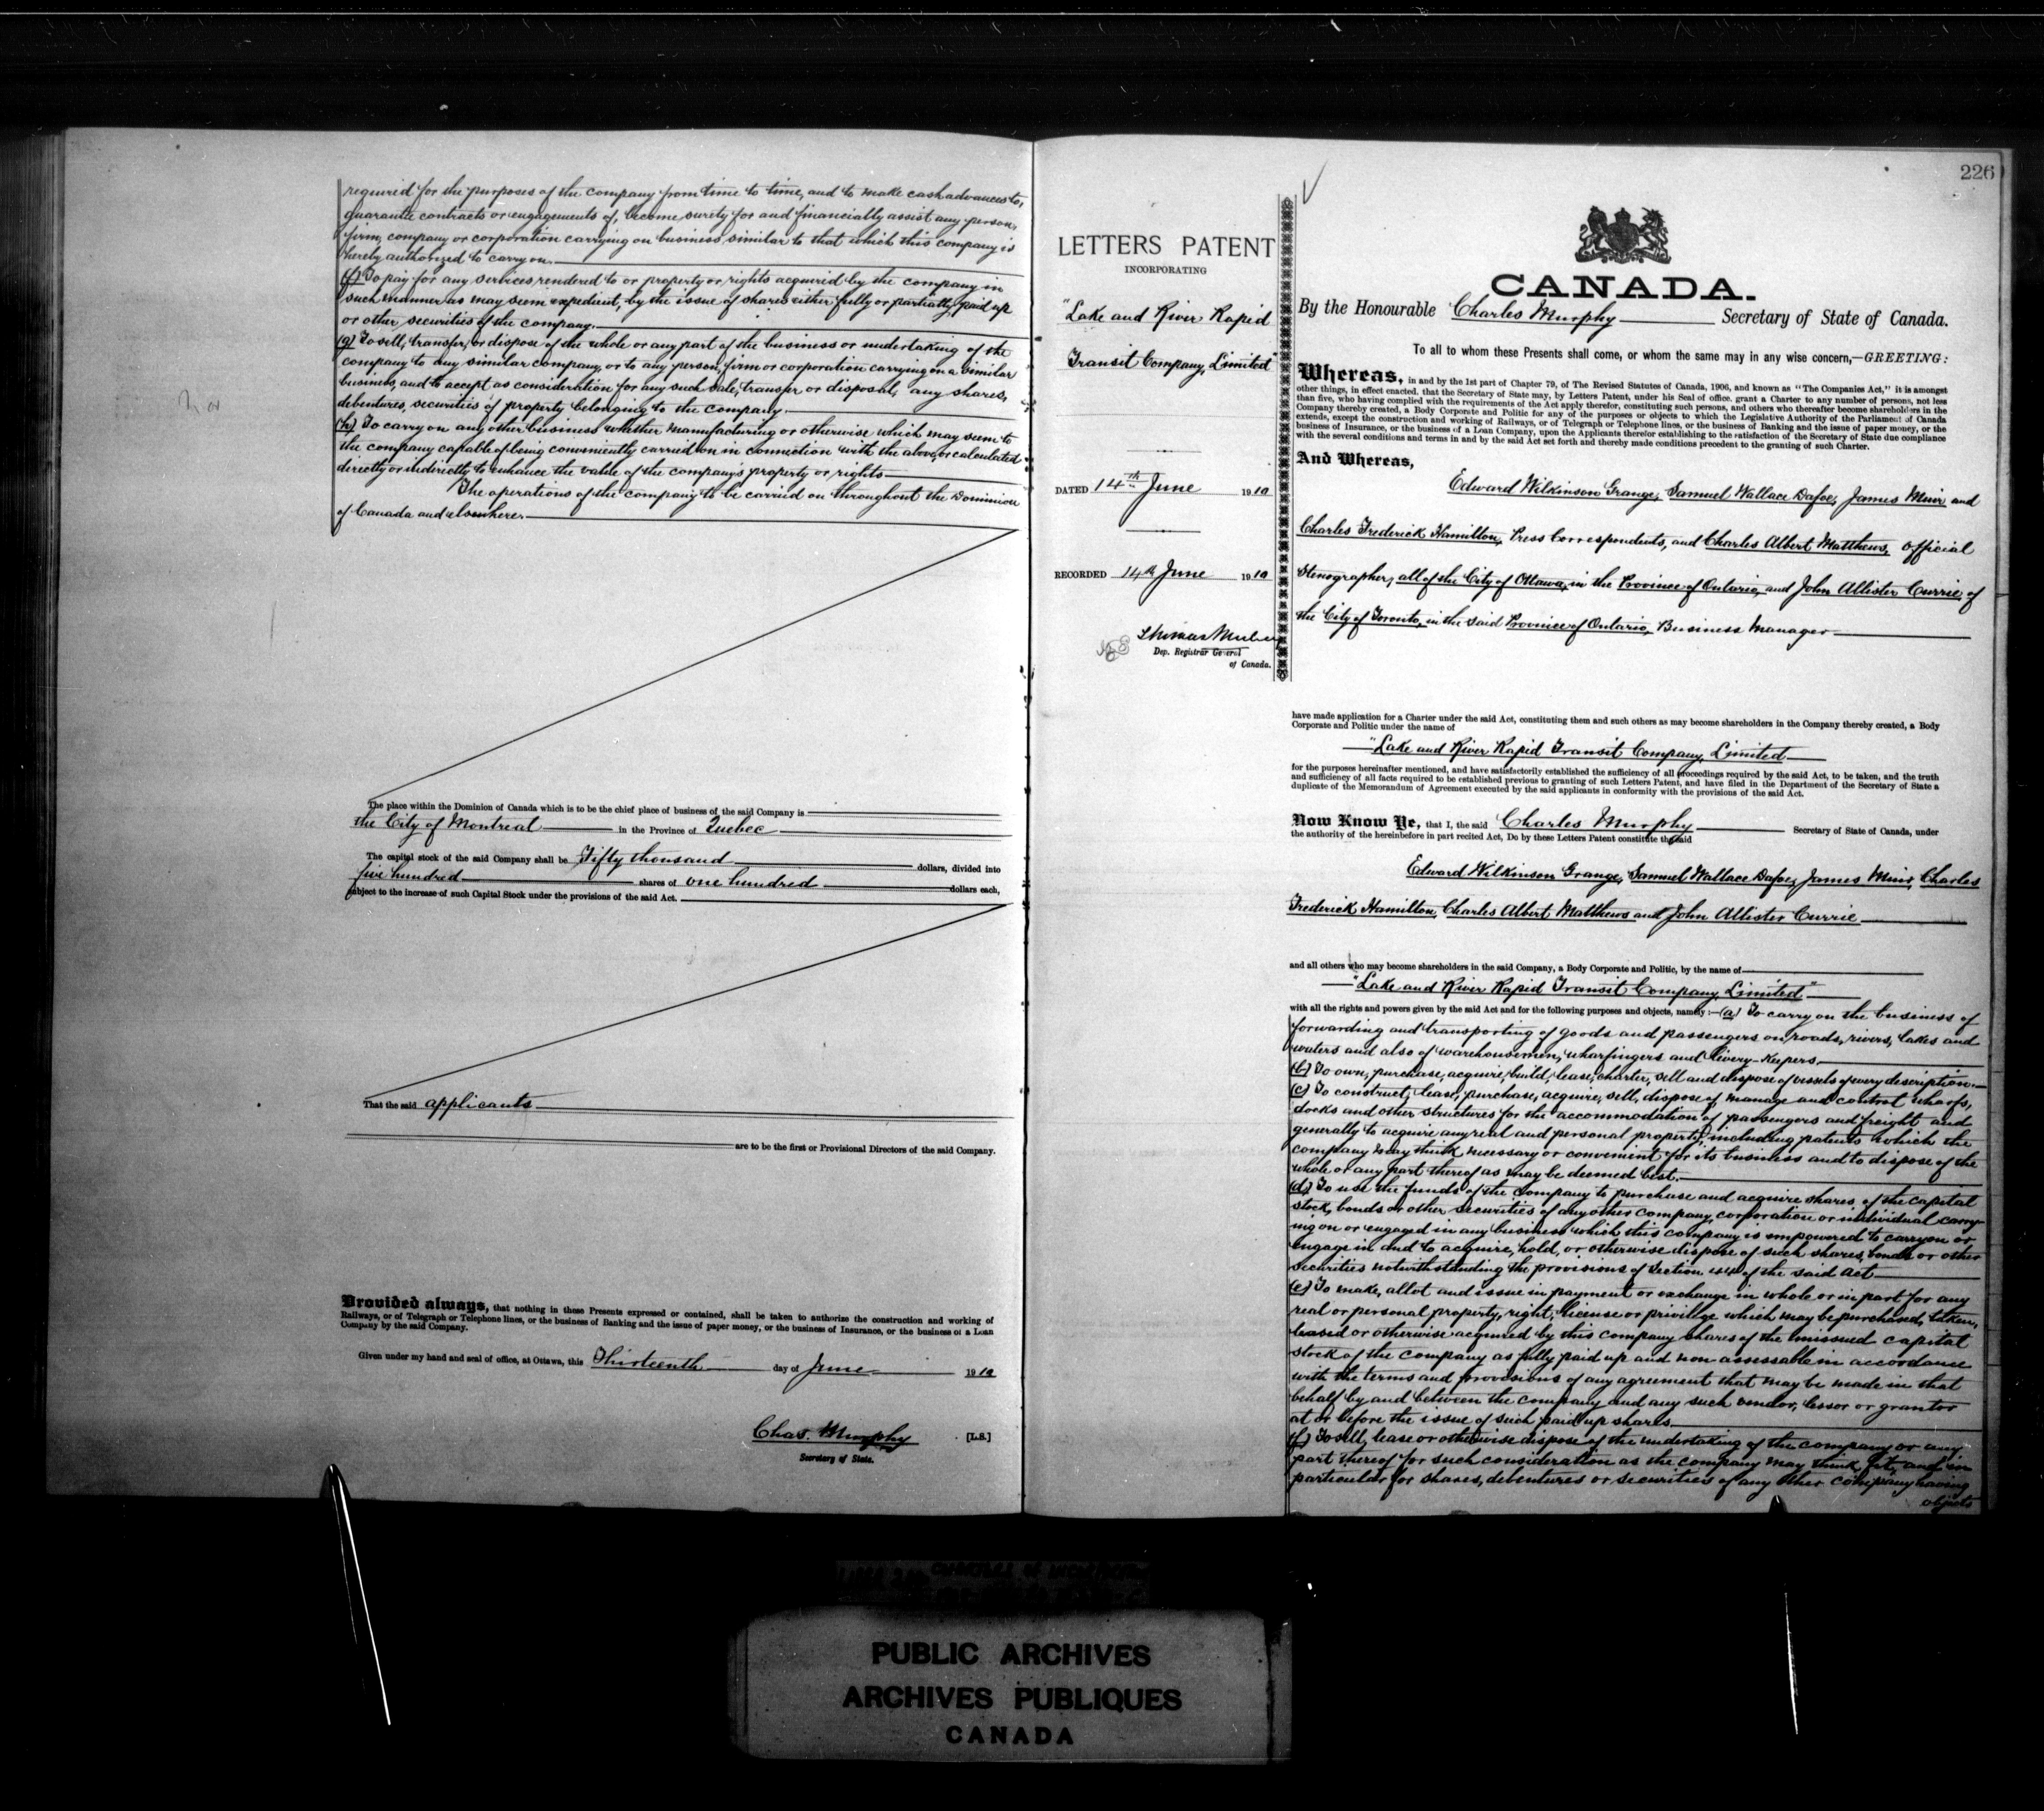 required for the purposes of the company from time to time, and to make cash advances to,
guarantee contracts or engagements of, become surety for and financially assist any person,
firm, company or corporation carrying on business similar to that which this company is
hereby authorized to carry on.
(f) To pay for any services rendered to or property or rights acquired by the company in
such manner as may seem expedient, by the issue of shares either fully or partially paid up
or other securities of the company.
(g) To sell, transfer, or dispose of the whole or any part of the business or undertaking of the
company to any similar company, or to any person, firm or corporation carrying on a similar
business, and to accept as consideration for any such sale, transfer or disposal, any shares,
debentures, securities of property belonging to the company.
(h) To carry on any other business whether manufacturing or otherwise which may seem to
the company capable of being conveniently carried on in connection with the above, or calculated
directly or indirectly to enhance the value of the company's property or rights
The operations of the company to be carried on throughout the Dominion
of Canada and elsewhere.
The place within the Dominion of Canada which is to be the chief place of business of the said Company is
the City of Montreal in the Province of Quebec
The capital stock of the said Company shall be Fifty thousand dollars, divided into
five hundred shares of one hundred dollars each,
subject to the increase of such Capital Stock under the provisions of the said Act.
That the said applicants
are to be the first or Provisional Directors of the said Company.
Provided always, that nothing in these Presents expressed or contained, shall be taken to authorize the construction and working of
Railways, or of Telegraph or Telephone lines, or the business of Banking and the issue of paper money, or the business of Insurance, or the business of a Loan
Company by the said Company.
Given under my hand and seal of office, at Ottawa, this Thirteenth day of June 1910
Chas. Murphy [L.S.]
Secretary of State.
226
LETTERS PATENT
INCORPORATING
"Lake and River Rapid
Transit Company, Limited"
DATED 14th June 1910
RECORDED 14th June 1910
Thomas Mulvey
Dep. Registrar General
of Canada.
CANADA.
By the Honourable Charles Murphy Secretary of State of Canada.
To all to whom these Presents shall come, or whom the same may in any wise concern,—GREETING:
Whereas, in and by the 1st part of Chapter 79, of The Revised Statutes of Canada, 1906, and known as "The Companies Act," it is amongst
other things, in effect enacted, that the Secretary of State may, by Letters Patent, under his Seal of office, grant a Charter to any number of persons, not less
than five, who having complied with the requirements of the Act apply therefor, constituting such persons, and others who thereafter become shareholders in the
Company thereby created, a Body Corporate and Politic for any of the purposes or objects to which the Legislative Authority of the Parliament of Canada
extends, except the construction and working of Railways, or of Telegraph or Telephone lines, or the business of Banking and the issue of paper money, or the
business of Insurance, or the business of a Loan Company, upon the Applicants therefor establishing to the satisfaction of the Secretary of State due compliance
with the several conditions and terms in and by the said Act set forth and thereby made conditions precedent to the granting of such Charter.
And Whereas,
Edward Wilkinson Grange, Samuel Wallace Dafoe, James Muir and
Charles Frederick Hamilton, Press Correspondents, and Charles Albert Matthews, official
Stenographer, all of the City of Ottawa, in the Province of Ontario, and John Allister Currie, of
the City of Toronto, in the said Province of Ontario, Business Manager
have made application for a Charter under the said Act, constituting them and such others as may become shareholders in the Company thereby created, a Body
Corporate and Politic under the name of
"Lake and River Rapid Transit Company, Limited
for the purposes hereinafter mentioned, and have satisfactorily established the sufficiency of all proceedings required by the said Act, to be taken, and the truth
and sufficiency of all facts required to be established previous to granting of such Letters Patent, and have filed in the Department of the Secretary of State a
duplicate of the Memorandum of Agreement executed by the said applicants in conformity with the provisions of the said Act.
Now Know Ye, that I, the said Charles Murphy Secretary of State of Canada, under
the authority of the hereinbefore in part recited Act, Do by these Letters Patent constitute the said
Edward Wilkinson Grange, Samuel Wallace Dafoe, James Muir, Charles
Frederick Hamilton, Charles Albert Matthews and John Allister Currie
and all others who may become shareholders in the said Company, a Body Corporate and Politic, by the name of
"Lake and River Rapid Transit Company, Limited"
with all the rights and powers given by the said Act and for the following purposes and objects, namely:—(a) To carry on the business of
forwarding and transporting of goods and passengers on roads, rivers, lakes and
waters and also of warehousemen, wharfingers and livery-keepers.
(b) To own, purchase, acquire, build, lease, charter, sell and dispose of vessels of every description.
(c) To construct, lease, purchase, acquire, sell, dispose of, manage and control wharfs,
docks and other structures for the accommodation of passengers and freight and
generally to acquire any real and personal property, including patents which the
company may think necessary or convenient for its business and to dispose of the
whole or any part thereof as may be deemed best.
(d) To use the funds of the Company to purchase and acquire shares of the capital
stock, bonds or other securities of any other company, corporation or individual carry-
ing on or engaged in any business which this company is empowered to carry on or
engage in and to acquire, hold, or otherwise dispose of such shares, bonds or other
securities notwithstanding the provisions of Section 44 of the said Act
(e) To make, allot and issue in payment or exchange in whole or in part for any
real or personal property, right, license or privilege which may be purchased, taken,
leased or otherwise acquired by this company shares of the unissued capital
stock of the company as fully paid up and non assessable in accordance
with the terms and provisions of any agreement that may be made in that
behalf by and between the company and any such vendor, lessor or grantor
at or before the issue of such paid up shares
(f) To sell, lease or otherwise dispose of the undertaking of the company or any
part thereof for such consideration as the company may think fit, and in
particular for shares, debentures or securities of any other company having
objects
PUBLIC ARCHIVES
ARCHIVES PUBLIQUES
CANADA